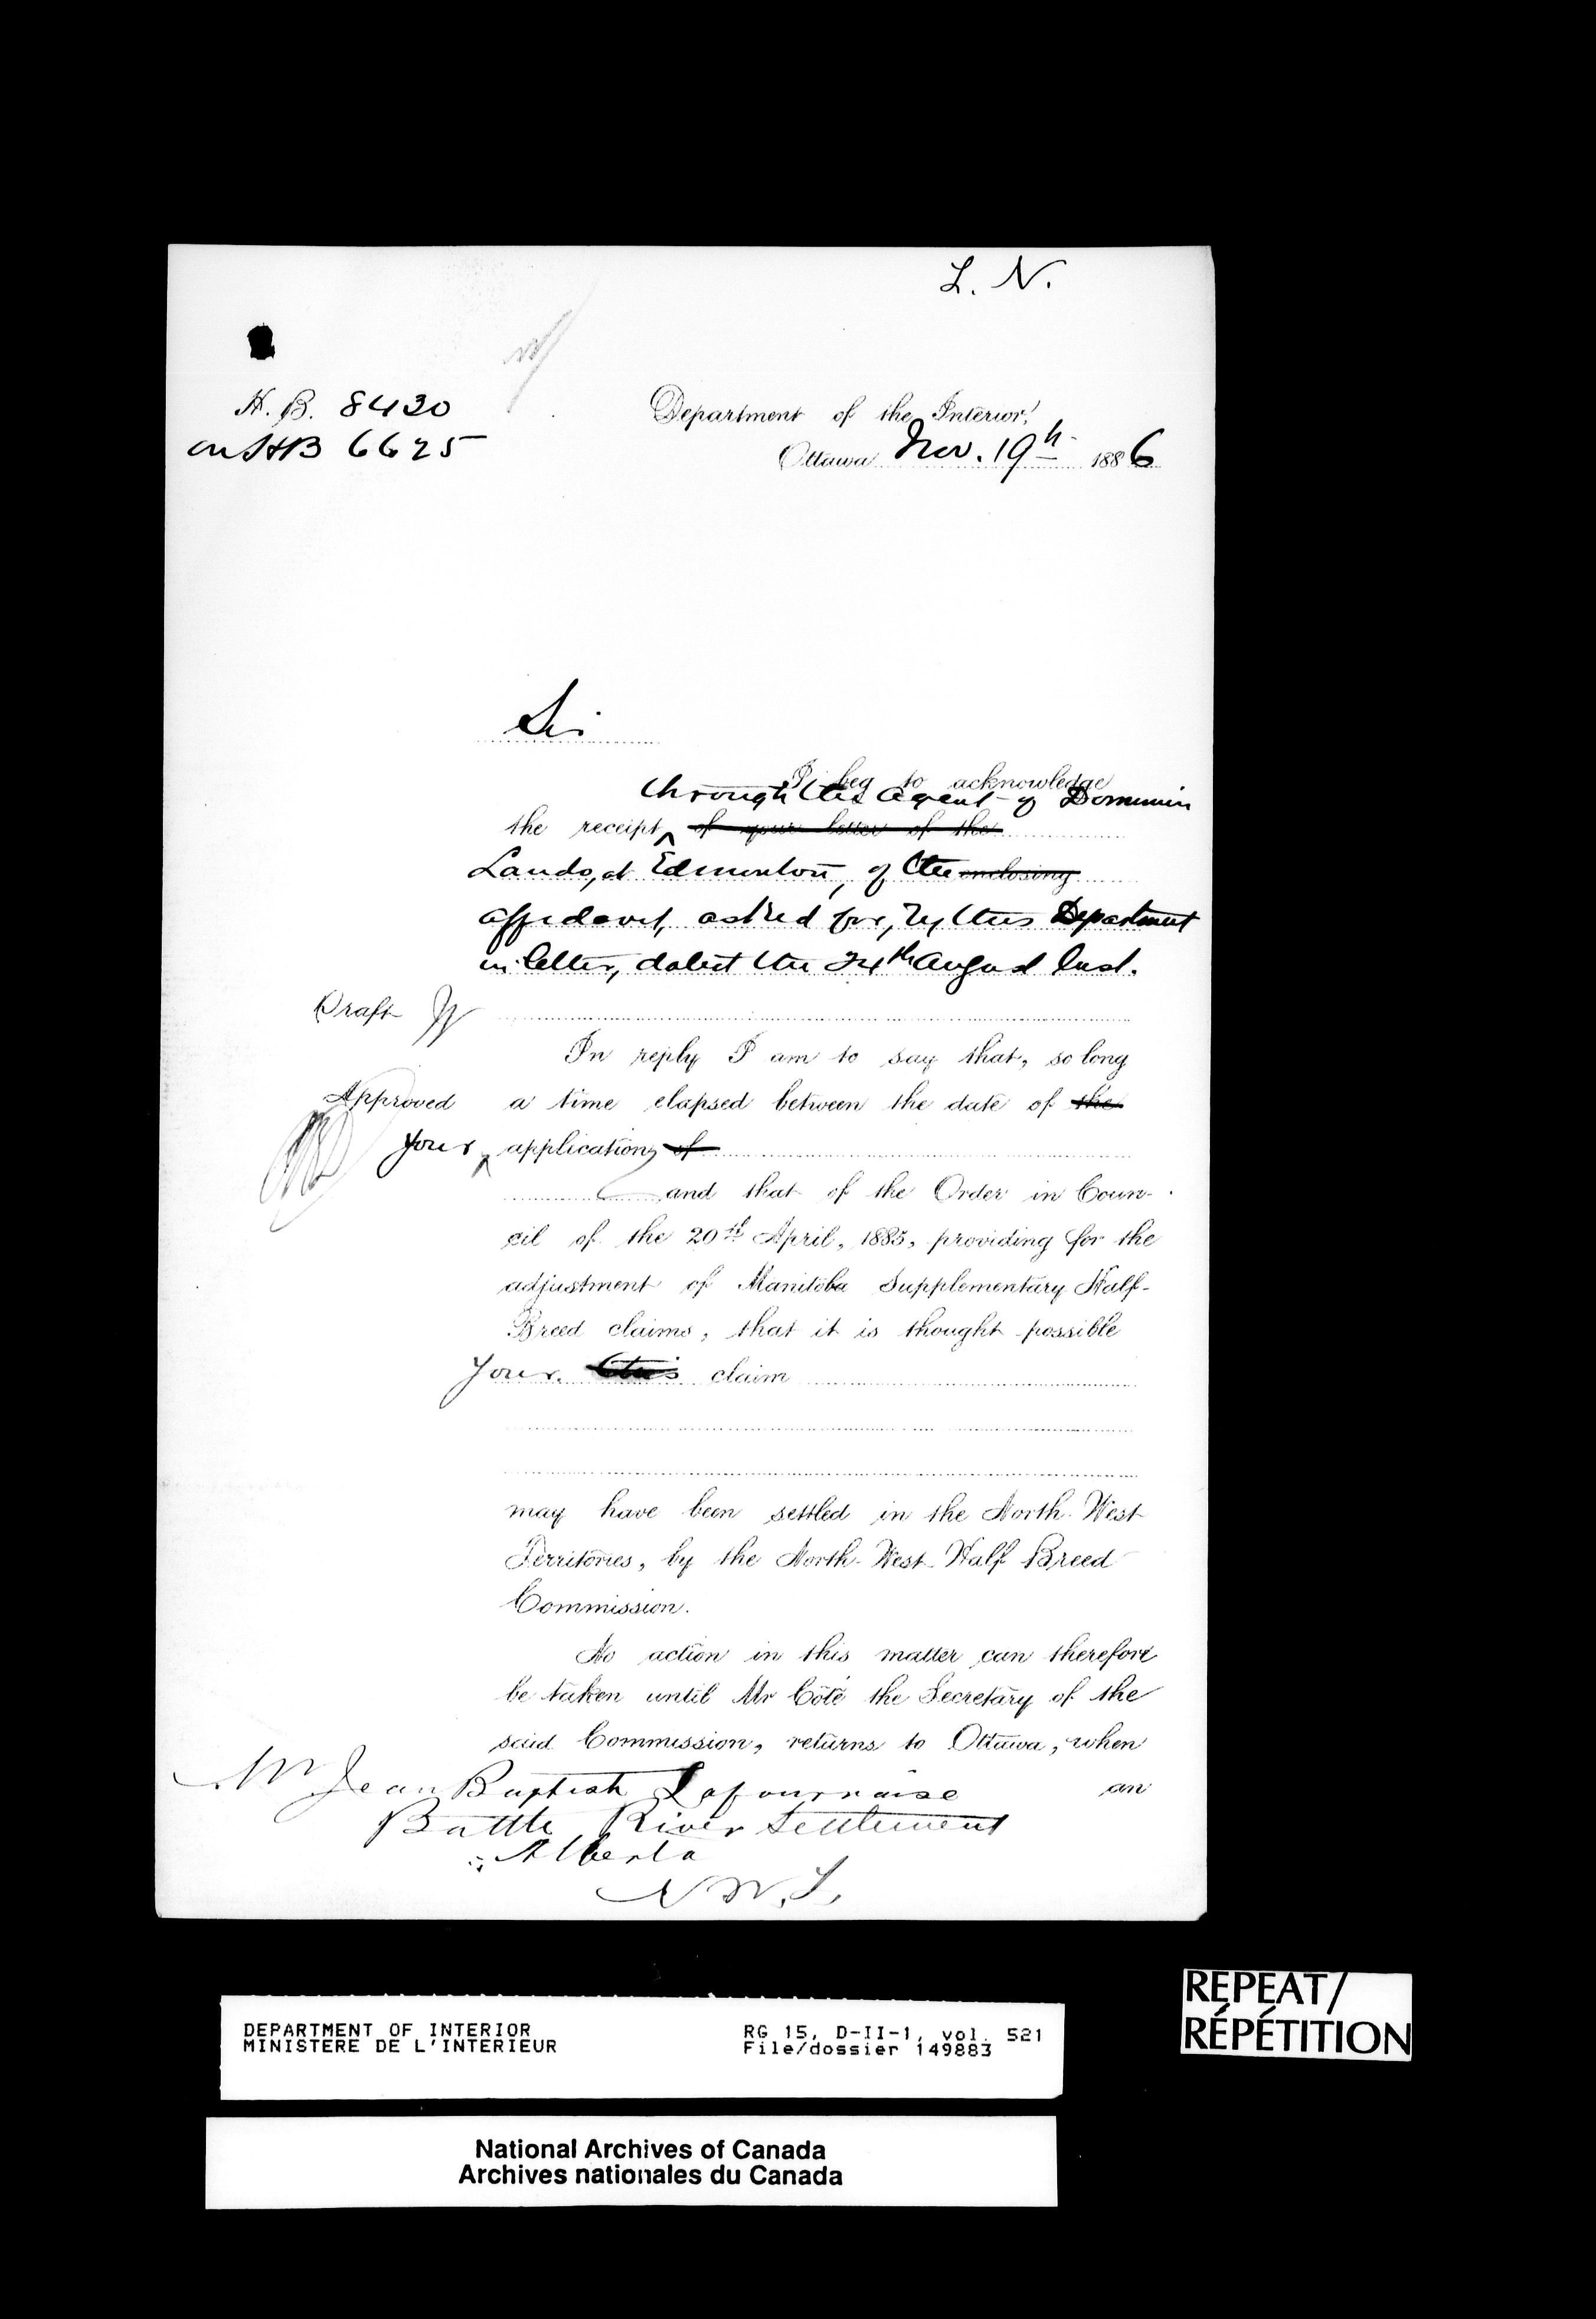 L. N.
H. B. 8430
on HB 6625
Department of the Interior,
Ottawa Nov. 19th 1886
Sir
I beg to acknowledge
through the Agent of Dominion
the receipt of your letter of the
Lands, at Edmonton, of the enclosing
affidavit, asked for, by this Department
in letter, dated the 24th August last.
Draft
In reply I am to say that, so long
Approved a time elapsed between the date of the
your application, of
and that of the Order in Coun-
cil of the 20th April, 1885, providing for the
adjustment of Manitoba Supplementary Half-
Breed claims, that it is thought possible
your. this claim
may have been settled in the North-West
Territories, by the North-West Half Breed
Commission.
No action in this matter can therefore
be taken until Mr Côté the Secretary of the
said Commission, returns to Ottawa, when
an
Mr Jean Baptiste Lafournaise
Battle River Settlement
Alberta
N.W.T.
DEPARTMENT OF INTERIOR
MINISTERE DE L'INTERIEUR
RG 15, D-II-1, vol. 521
File/dossier 149883
REPEAT/
RÉPÉTITION
National Archives of Canada
Archives nationales du Canada